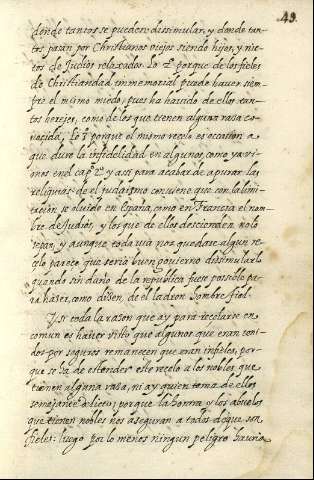 49.
donde tantos se pueden dissimular, y donde tan-
tos pasan por Christianos viejos siendo hijos, y nie-
tos de Judios relaxados. Lo 2º porque de los fieles
de Christiandad immemorial puede haver siem-
pre el mismo miedo, pues ha havido de ellos tan-
tos herejes, como de los que tienen alguna rasa co-
nocida. Lo 3º porque el mismo recelo es occasion a
que dure la infidelidad en algunos, como ya vi-
mos en el capº 2º y assi para acabar de apurar las
reliquias de el judaismo conviene que con la limi-
tacion se olvide en España, como en Francia el nom-
bre de Judios, y los que de ellos descienden no lo
sepan, y aunque toda via nos quedase algun re-
celo parece que seria buen govierno dissimularlo
quando sin daño de la republica fuese possible pa-
ra haser, como disen, de el ladron hombre fiel.
Y si toda la rason que ay para recelarse en
comun es haver visto que algunos que eran teni-
dos por seguros remanecen que eran infieles, por-
que se ha de estender este recelo a los nobles que
tienen alguna rasa, ni ay quien tema de ellos
semejante delicto; porque la honra y los abuelos
que tienen nobles nos aseguran a todos de que son
fieles: luego por lo menos ningun peligro havria